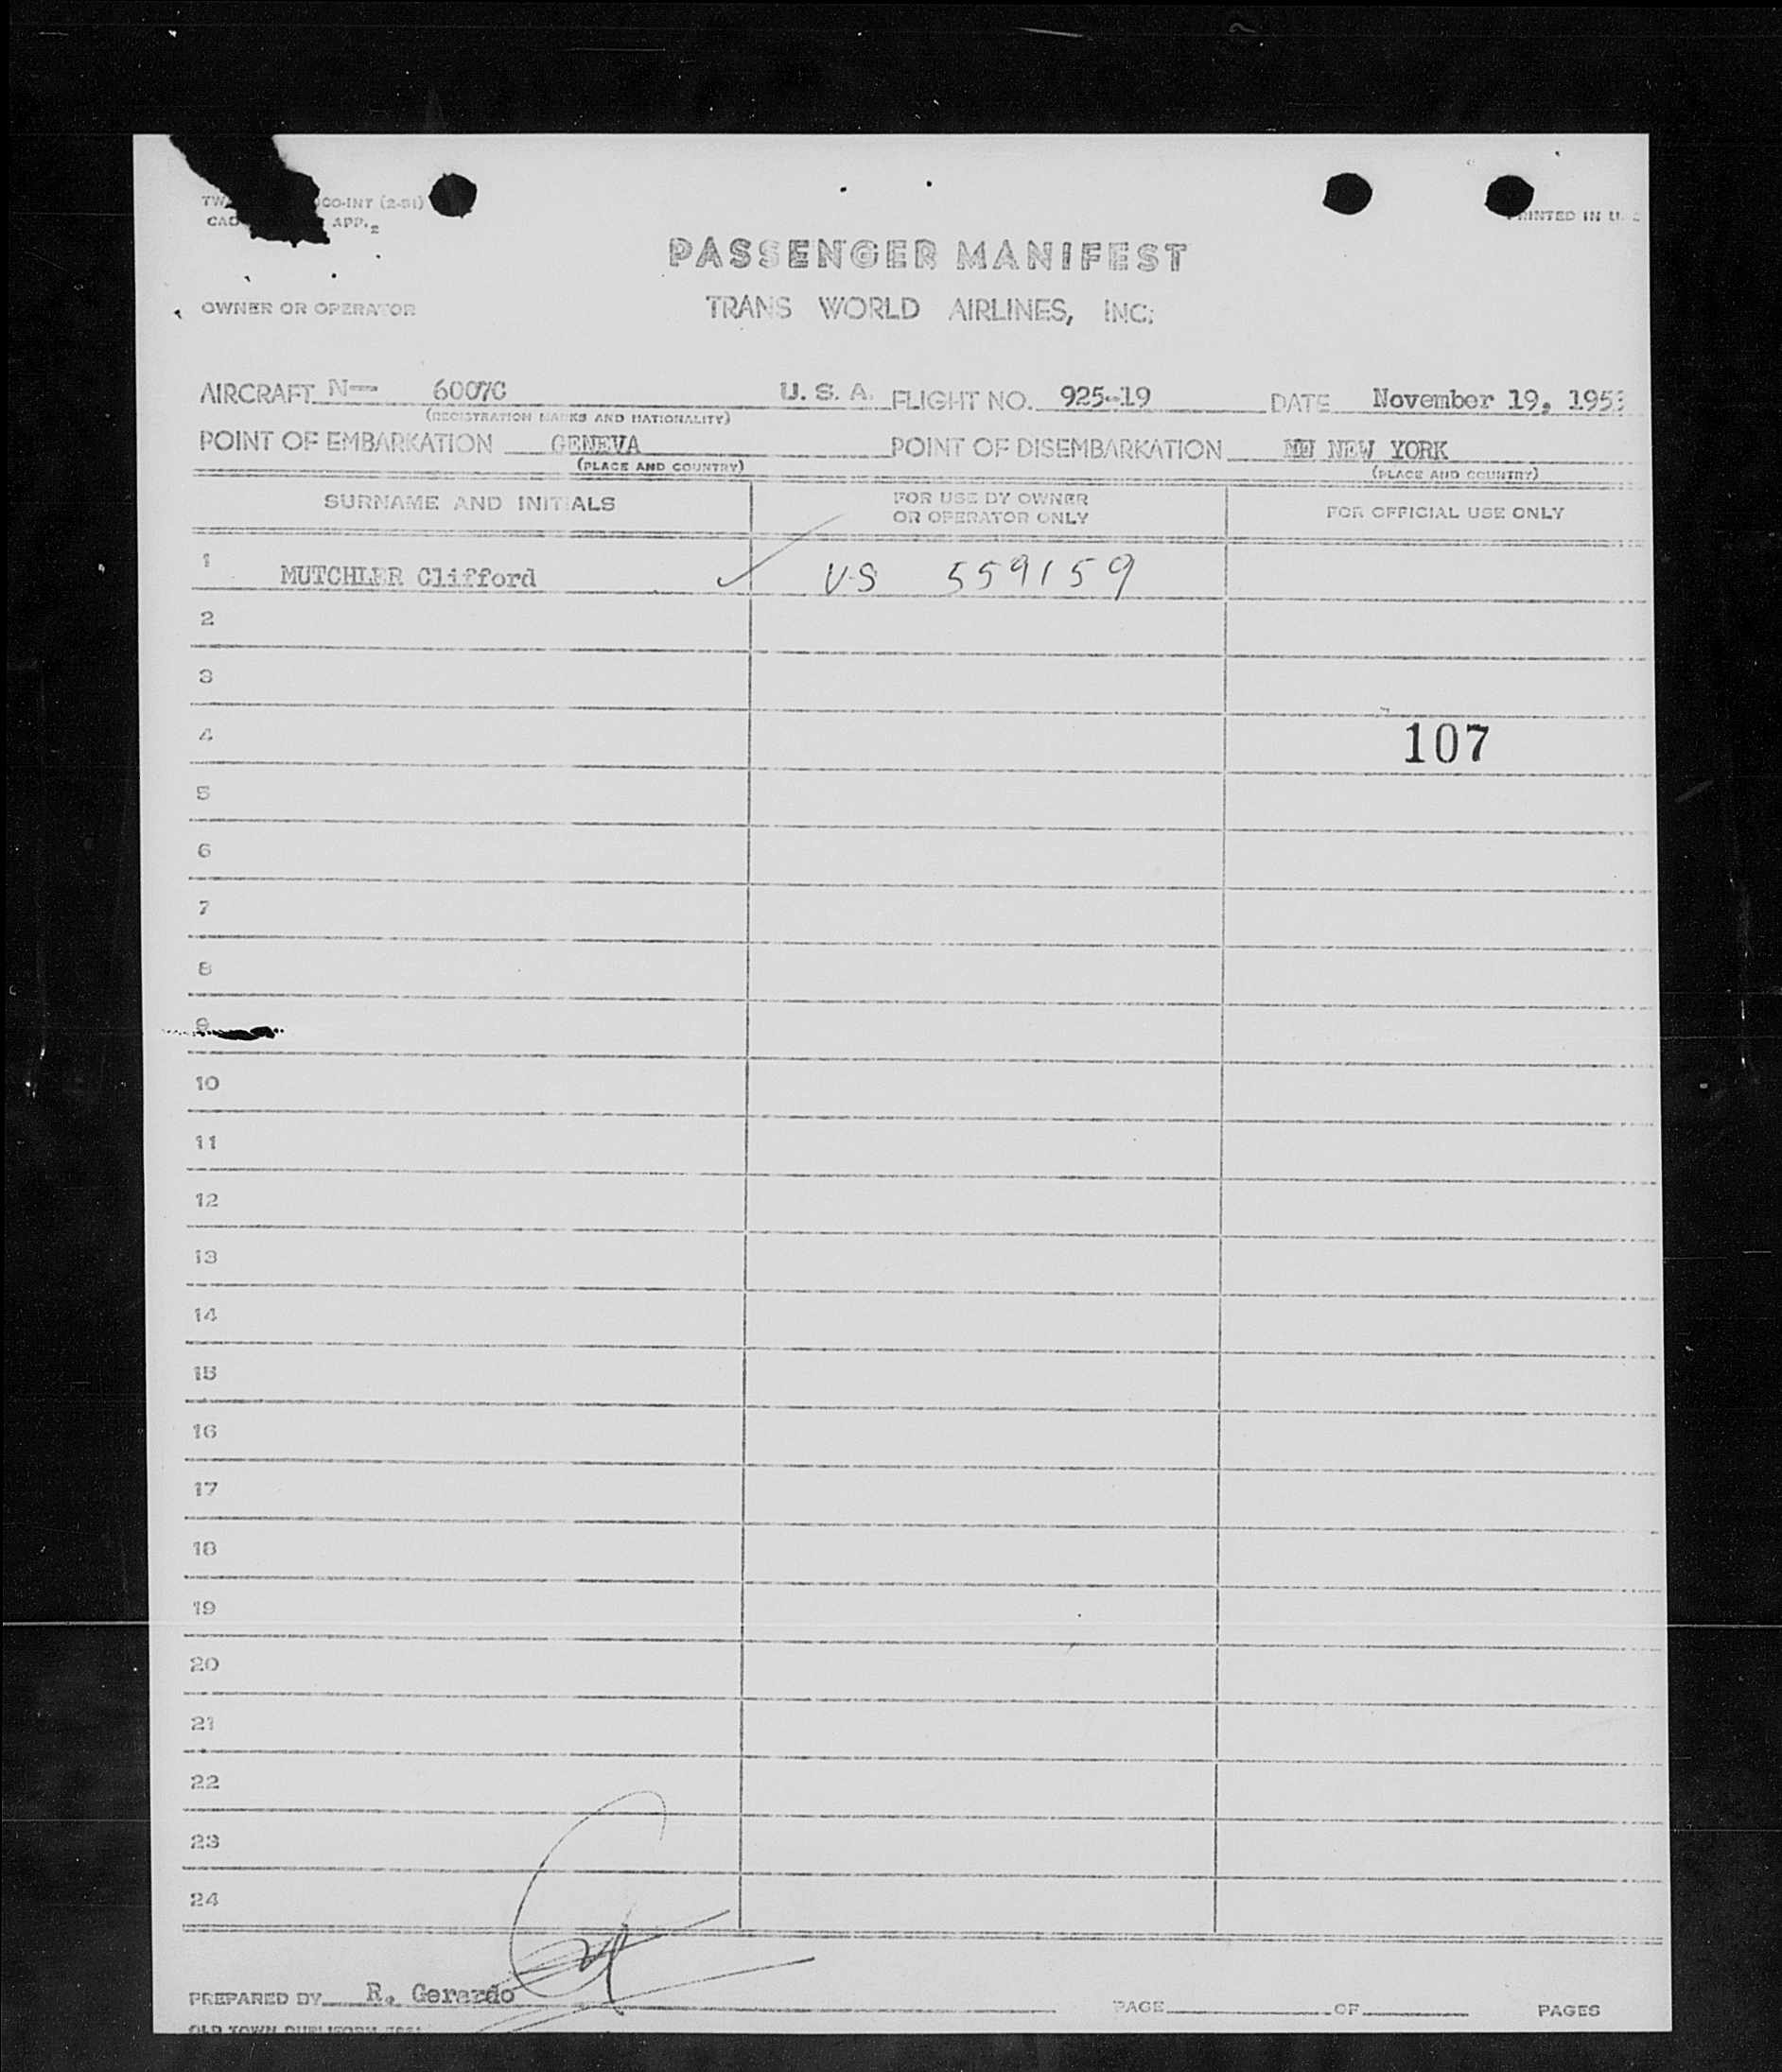 CO-INT (2-51)
APP. 2
PRINTED IN U.
PASSENGER MANIFEST
OWNER OR OPERATOR
TRANS WORLD AIRLINES, INC.
AIRCRAFT N— 6007C U. S. A. FLIGHT NO. 925-19 DATE November 19, 195
(REGISTRATION MARKS AND NATIONALITY)
POINT OF EMBARKATION GENEVA POINT OF DISEMBARKATION NEW YORK
(PLACE AND COUNTRY) (PLACE AND COUNTRY)
SURNAME AND INITIALS FOR USE BY OWNER OR OPERATOR ONLY FOR OFFICIAL USE ONLY
1 MUTCHLER Clifford ✓ US 559159
2
3
4 107
5
6
7
8
9
10
11
12
13
14
15
16
17
18
19
20
21
22
23
24
PREPARED BY R. Gerardo PAGE OF PAGES
OLD TOWN